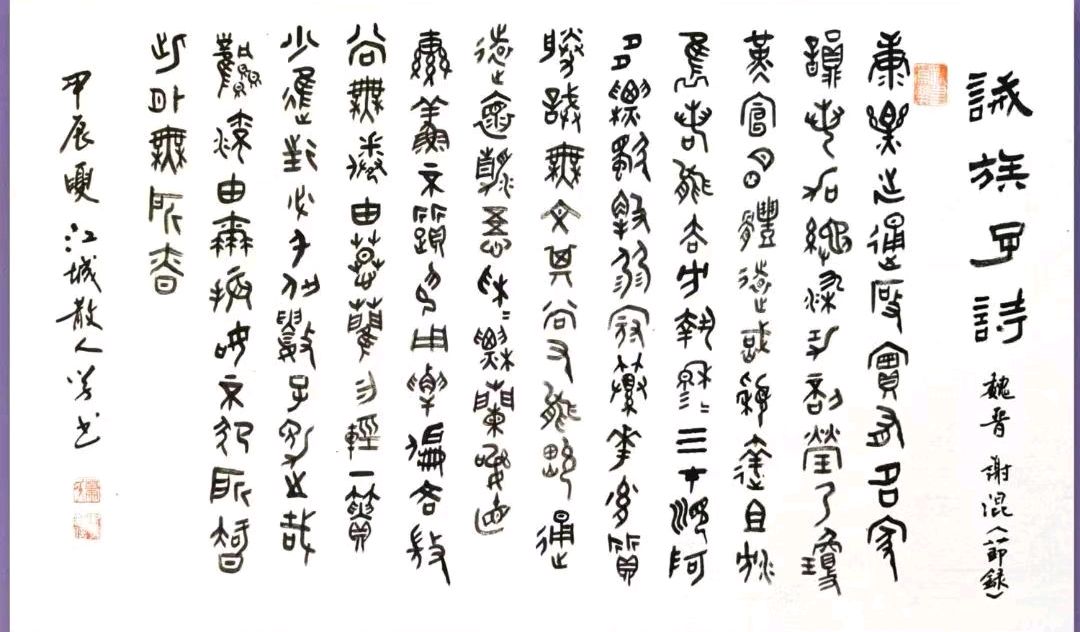 誡族子詩 魏晋 謝混（節録）
康樂誕通度實有名家
韻若加繩染功剖瑩乃瓊
瑾宣明體遠識穎達且沈
俊若能去方執穆穆三才順阿
多標獨解弱冠纂華胤質
勝誡無文其尚又能峻通
遠懷清悟采采標蘭訊直
轡鮮不躓抑用解偏吝微
尚無倦由慕藺勿輕一簣
少進往必千仞數子勉之哉
風流由爾振如不犯所知
此外無所慎
甲辰夏 江城散人学书